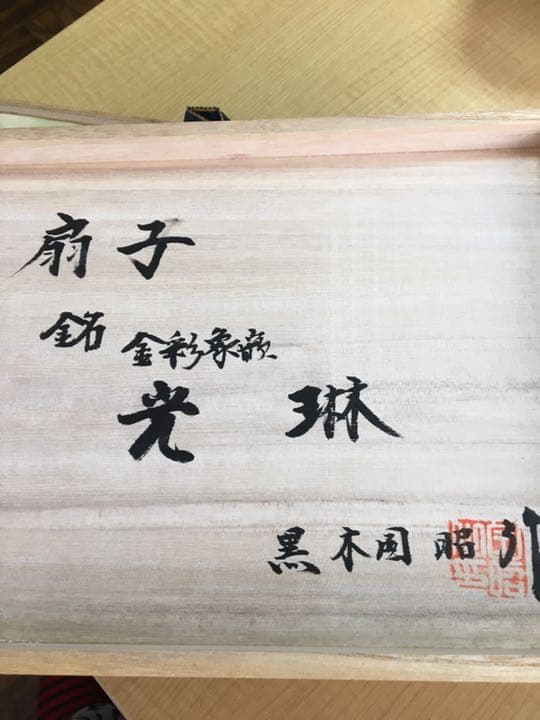 扇子
銘 金彩象嵌
光琳
黒木国昭